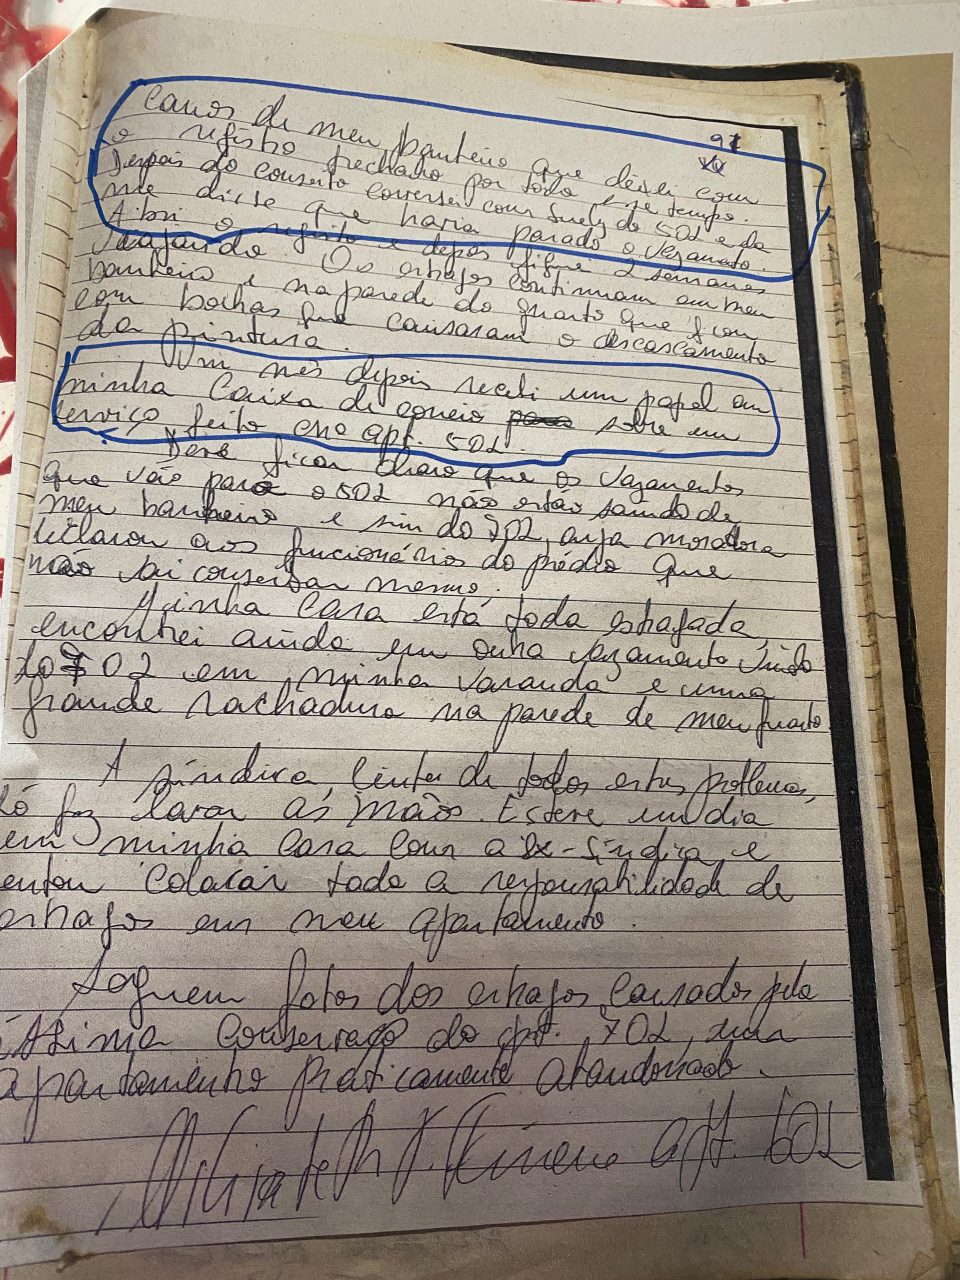 91
canos de meu banheiro que deixei com
o registro frechado por todo esse tempo.
Depois do conserto conversei com Suely do 502 e ela
me disse que havia parado o vazamento.
Abri o registro e depois fiquei 2 semanas
viajando. Os estragos continuam em meu
banheiro e na parede do quarto que ficou
com bolhas que causaram o descascamento
da pintura.
Um mês depois recebi um papel em
minha caixa de correio sobre um
serviço feito no apt. 502.
Deve ficar claro que os vazamentos
que vão para o 502 não estão saindo de
meu banheiro e sim do 702, cuja moradora
declarou aos funcionários do prédio que
não vai consertar mesmo.
Minha casa está toda estragada,
encontrei ainda um outro vazamento vindo
do 702 em minha varanda e uma
grande rachadura na parede de meu quarto.
A síndica, ciente de todos estes problemas,
só faz lavar as mãos. Esteve um dia
em minha casa com a ex-síndica e
tentou colocar toda a responsabilidade de
estragos em meu apartamento.
Seguem fotos dos estragos causados pela
péssima conservação do apt. 702, um
apartamento praticamente abandonado.
apt. 602